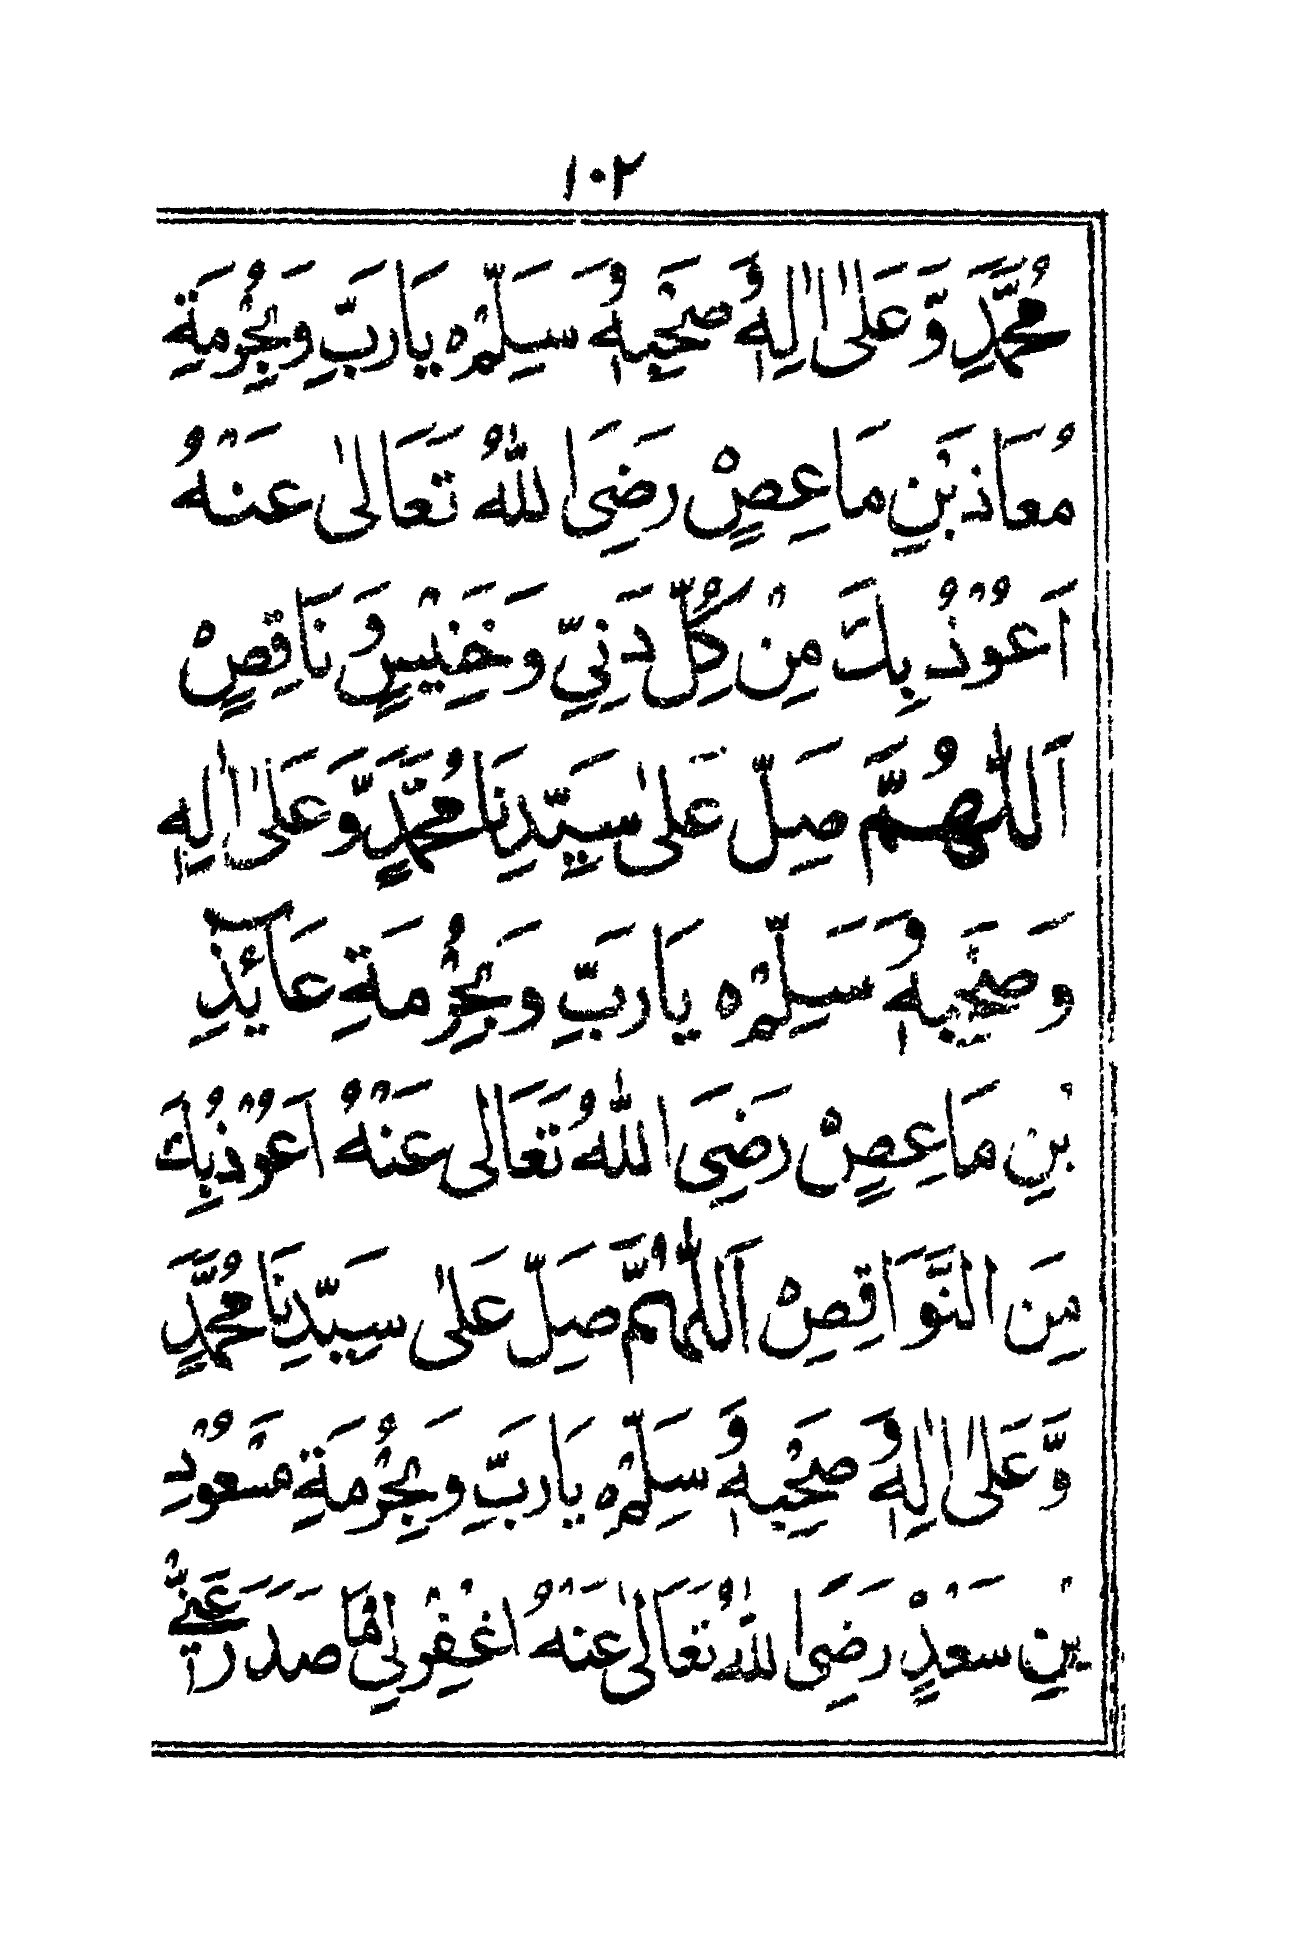 ١٠٢
مُحَمَّدٍ وَّعَلٰى اٰلِهٖ وَصَحْبِهٖ وَسَلِّمْ ه يَارَبِّ وَبِحُرْمَةِ
مُعَاذِ بْنِ مَاعِصٍ رَضِىَ اللّٰهُ تَعَالٰى عَنْهُ
اَعُوْذُ بِكَ مِنْ كُلِّ دَنِيٍّ وَخَنِيْسٍ وَنَاقِصٍ
اَللّٰهُمَّ صَلِّ عَلٰى سَيِّدِنَا مُحَمَّدٍ وَّعَلٰى اٰلِهٖ
وَصَحْبِهٖ وَسَلِّمْ ه يَارَبِّ وَبِحُرْمَةِ عَائِذِ
بْنِ مَاعِصٍ رَضِىَ اللّٰهُ تَعَالٰى عَنْهُ اَعُوْذُبِكَ
مِنَ النَّوَاقِصِ ه اَللّٰهُمَّ صَلِّ عَلٰى سَيِّدِنَا مُحَمَّدٍ
وَّعَلٰى اٰلِهٖ وَصَحْبِهٖ وَسَلِّمْ ه يَارَبِّ وَبِحُرْمَةِ مَسْعُوْدِ
بْنِ سَعْدٍ رَضِىَ اللّٰهُ تَعَالٰى عَنْهُ اغْفِرْلِي مَا صَدَرَ عَنِّيْ